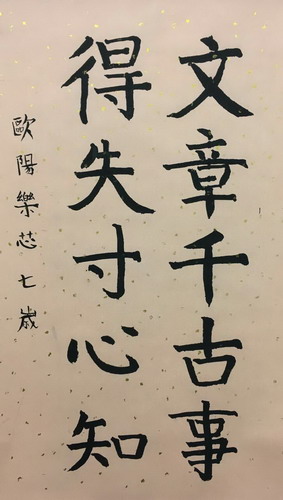 文章千古事
得失寸心知
歐陽樂芯七歲